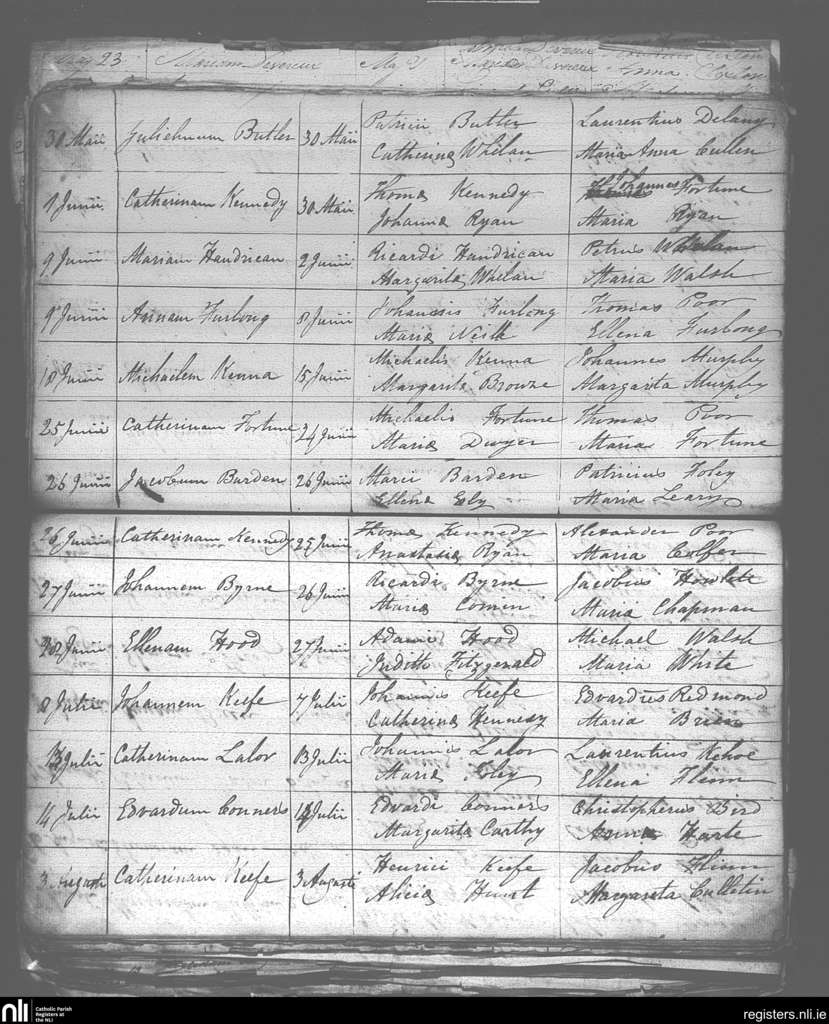 May 23 Mariam Devereux May 21
30 Maii Juliehmum Butler 30 Maii Patricii Butler Laurentius Delany
Catherina Whelan Maria Anna Cullen
1 Junii Catherinam Kennedy 30 Maii Thoma Kennedy Johannes Fortune
Johanna Ryan Maria Ryan
9 Junii Mariam Handrican 2 Junii Ricardi Handrican Petrus Whelan
Margarita Whelan Maria Walsh
9 Junii Annam Furlong 8 Junii Johannis Furlong Thomas Poor
Maria Ellena Furlong
18 Junii Michaelem Kenna 15 Junii Michaelis Kenna Johannes Murphy
Margarita Browne Margarita Murphy
25 Junii Catherinam Fortune 24 Junii Michaelis Fortune Thomas Poor
Maria Dwyer Maria Fortune
26 Junii Jacobum Barden 26 Junii Marii Barden Patricius Foley
Ellena Ely Maria Leary
26 Junii Catherinam Kennedy 25 Junii Thoma Kennedy Alexander Poor
Anastasia Ryan Maria Colfer
27 Junii Johannem Byrne 26 Junii Ricardi Byrne Jacobus Howlett
Maria Comin Maria Chapman
Junii Ellenam Hood 27 Junii Adami Hood Michael Walsh
Juditha Fitzgerald Maria White
8 Julii Johannem Keefe 7 Julii Johannis Keefe Edvardus Redmond
Catherina Hennesy Maria Brien
13 Julii Catherinam Lalor 13 Julii Johannis Lalor Laurentius Kehoe
Maria Foley Ellena Flinn
14 Julii Edvardum Conners 14 Julii Edvardi Connors Christopherus Bird
Margarita Carthy Anna Harte
3 Augusti Catherinam Keefe 3 Augusti Henrici Keefe Jacobus Flinn
Alicia Hunt Margareta Culletin
nli Catholic Parish
Registers at
the NLI
registers.nli.ie